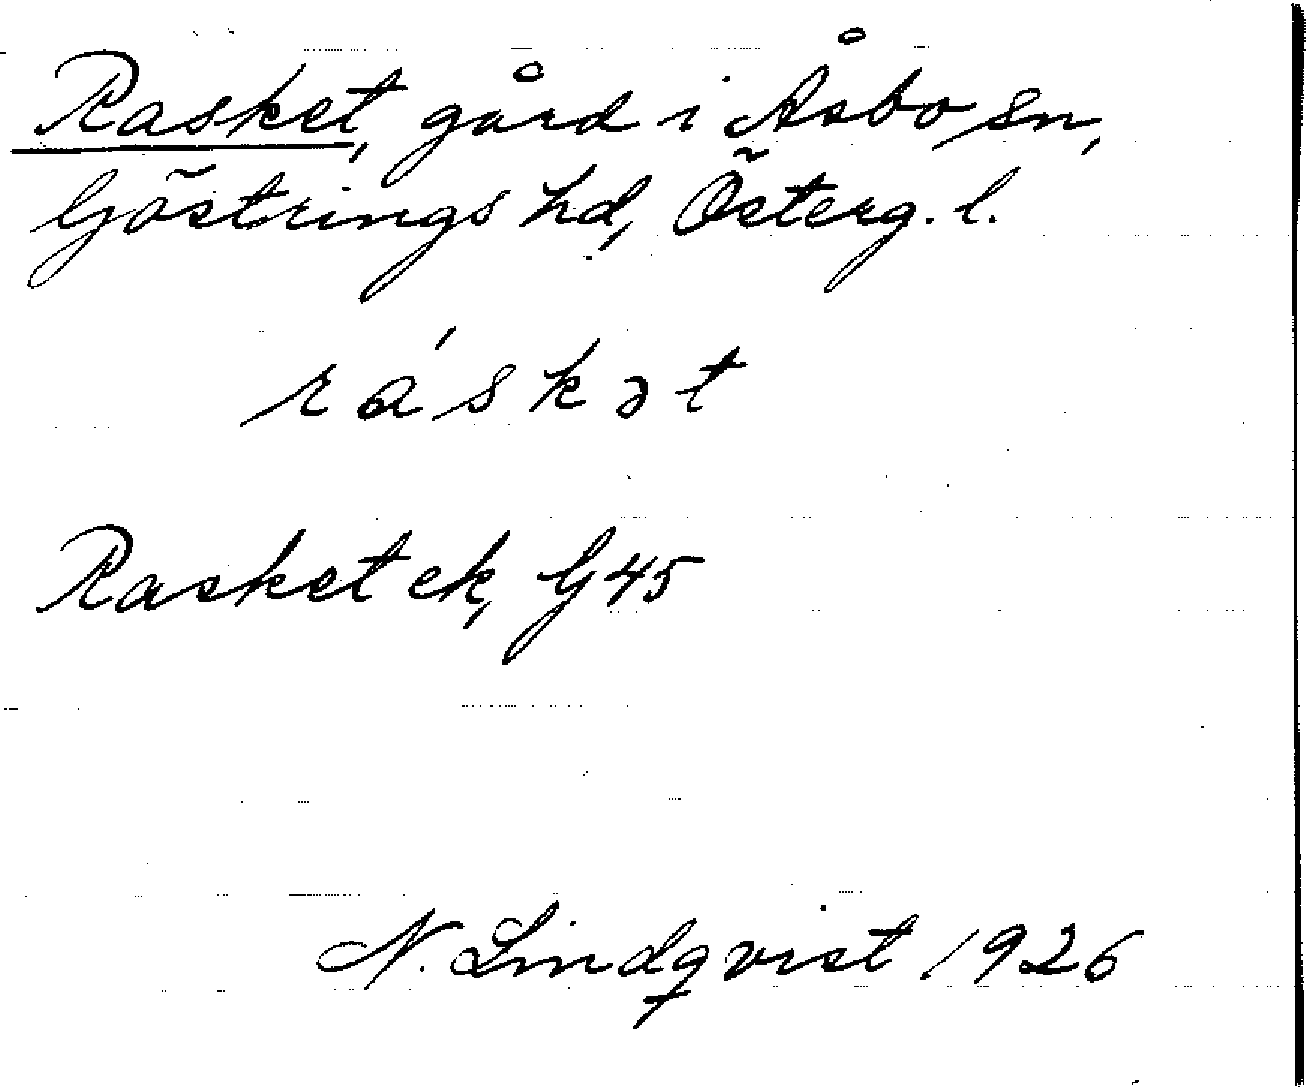 Rasket, gård i Åsbo sn,
Göstrings hd, Österg. l.
ráskət
Rasket ek, G45
N. Lindqvist 1926